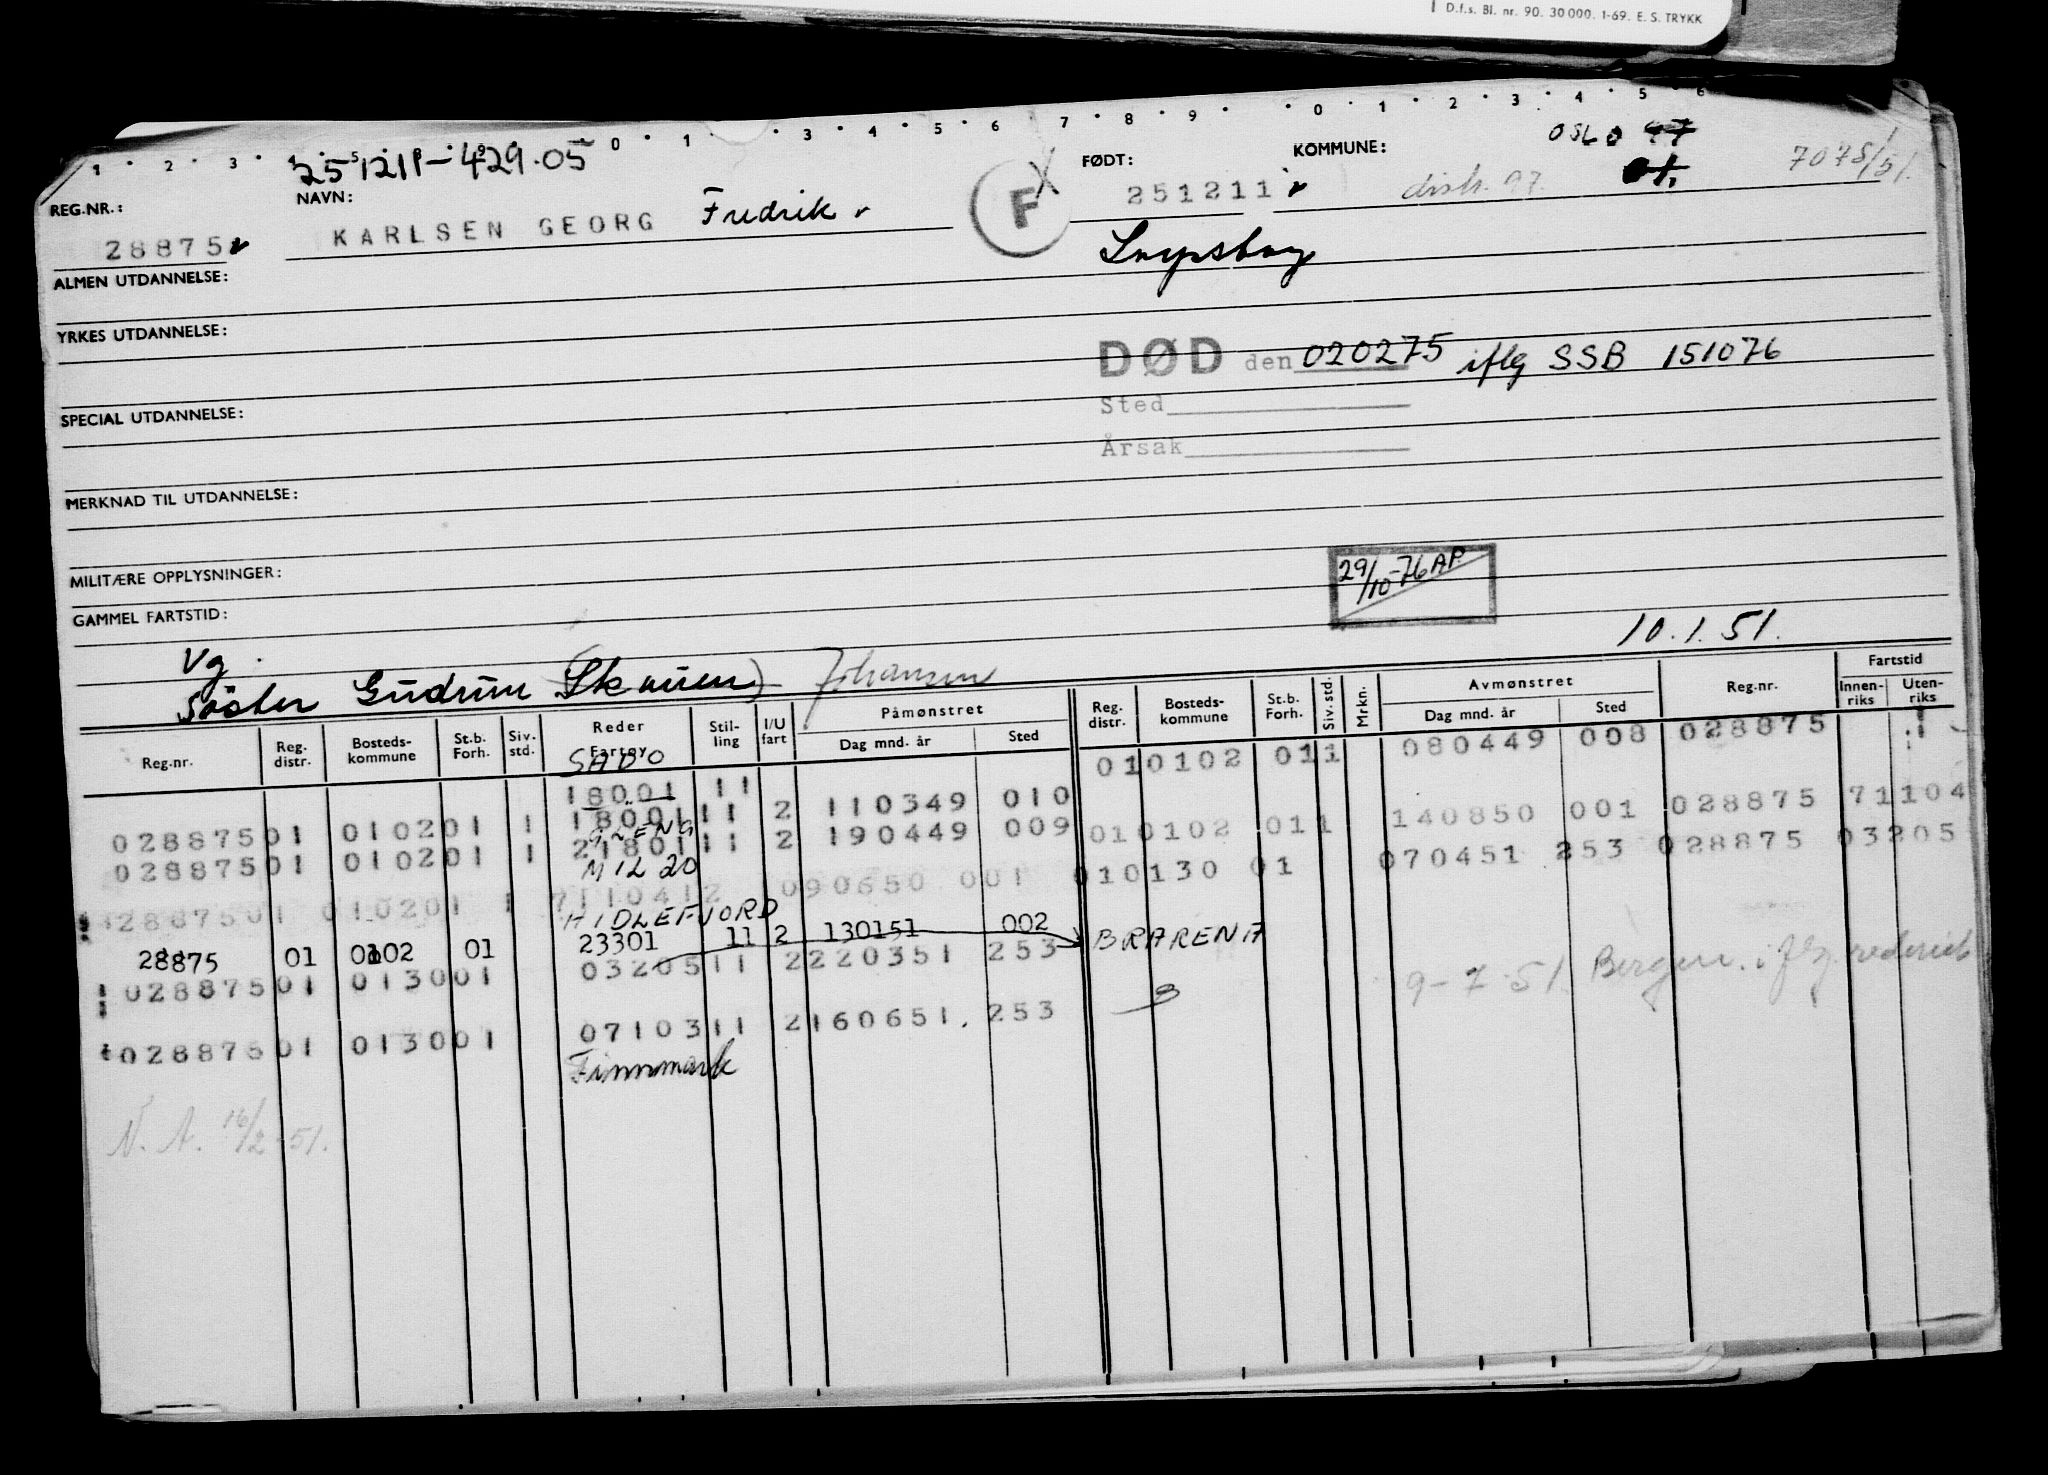 D.f.s. Bl. nr. 90. 30 000. 1-69. E. S. TRYKK
1 2 3 0 1 3 4 5 6 7 8 9 0 1 2 3 4 5 6
251211-429.05
OSLO 97
01.
7078/51.
REG.NR.: NAVN: FØDT: KOMMUNE:
28875 KARLSEN GEORG Fredrik F X 251211 distr. 97.
ALMEN UTDANNELSE:
YRKES UTDANNELSE:
DØD den 020275 iflg SSB 151076
Sted
SPECIAL UTDANNELSE:
Årsak
MERKNAD TIL UTDANNELSE:
MILITÆRE OPPLYSNINGER:
29/10-76 AP.
GAMMEL FARTSTID:
10.1.51.
Vg.
Søster Gudrun Johansen
Reg.nr. Reg. distr. Bosteds-kommune St.b. Forh. Siv. std. Reder Fartøy Stil-ling I/U fart Påmønstret Dag mnd. år Sted Reg. distr. Bosteds-kommune St.b. Forh. Siv. std. Mrkn. Avmønstret Dag mnd. år Sted Reg.nr. Fartstid Innen-riks Uten-riks
18001 11 010102 011 080449 008 028875
02887501 010201 1 18001 11 2 110349 010 010102 011 140850 001 028875 71104
GLENG
02887501 010201 1 21801 11 2 190449 009 010130 01 070451 253 028875 03205
MIL 20
02887501 010201 1 7110412 090650 001
HIDLEFJORD
28875 01 0102 01 23301 11 2 130151 002 BRARENA
02887501 013001 03205 11 2 220351 253
9-7-51. Bergen. iflg. rederiet
02887501 013001 07103 11 2 160651. 253
Finnmark
N. A. 16/2-51.